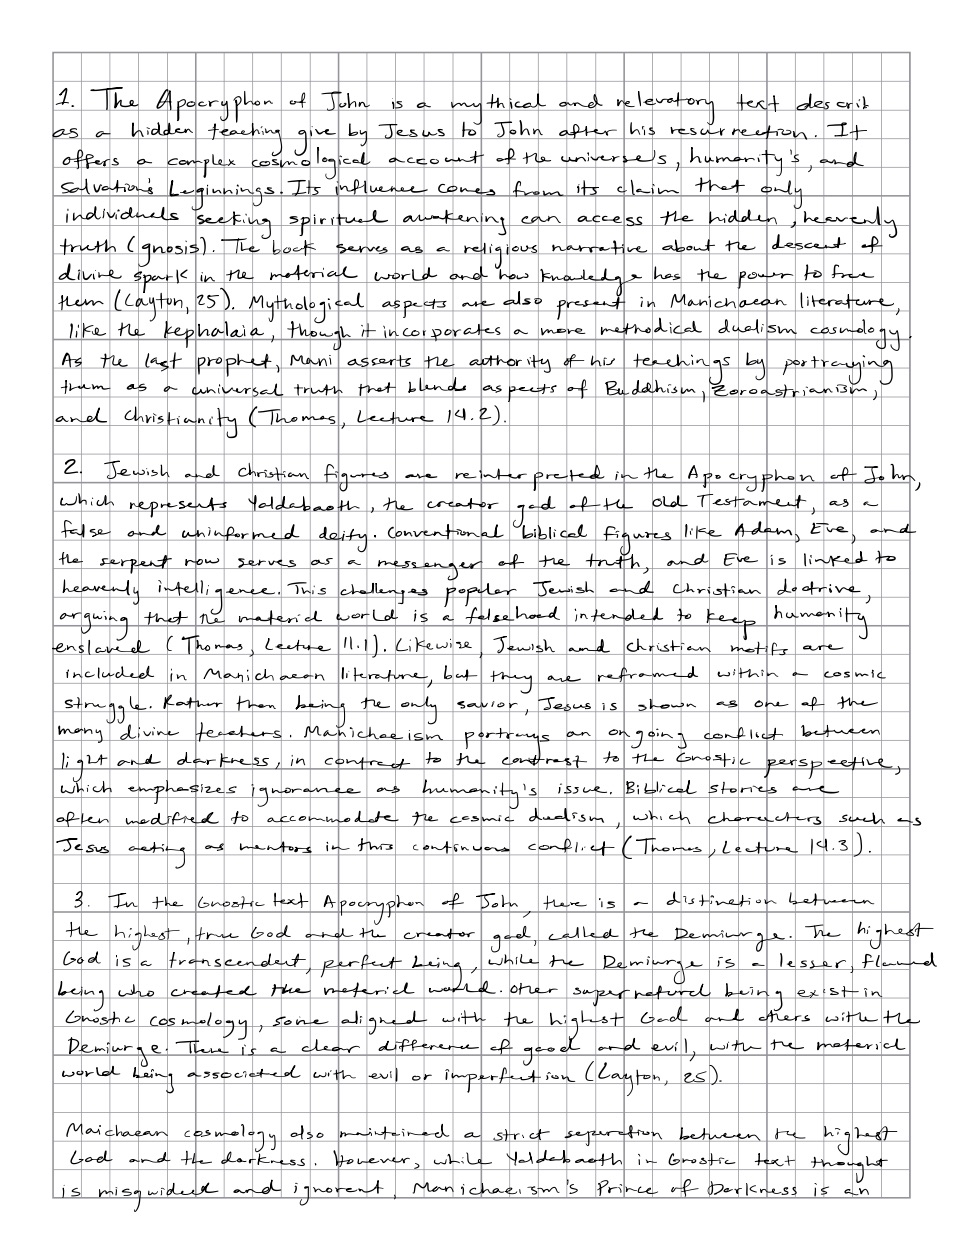 1. The Apocryphon of John is a mythical and relevatory text describ
as a hidden teaching give by Jesus to John after his resurrection. It
offers a complex cosmological account of the universe's, humanity's, and
salvation's beginnings. Its influence comes from its claim that only
individuals seeking spiritual awakening can access the hidden, heavenly
truth (gnosis). The book serves as a religious narrative about the descent of
divine spark in the material world and how knowledge has the power to free
them (Layton, 25). Mythological aspects are also present in Manichaean literature,
like the Kephalaia, though it incorporates a more methodical dualism cosmology.
As the last prophet, Mani asserts the authority of his teachings by portraying
them as a universal truth that blends aspects of Buddhism, Zoroastrianism,
and Christianity (Thomas, Lecture 14.2).
2. Jewish and Christian figures are reinterpreted in the Apocryphon of John,
which represents Yaldabaoth, the creator god of the Old Testament, as a
false and uninformed deity. Conventional biblical figures like Adam, Eve, and
the serpent now serves as a messenger of the truth, and Eve is linked to
heavenly intelligence. This challenges popular Jewish and Christian doctrive,
arguing that the material world is a falsehood intended to keep humanity
enslaved (Thomas, Lecture 11.1). Likewise, Jewish and Christian motifs are
included in Manichaean literature, but they are reframed within a cosmic
struggle. Rather than being the only savior, Jesus is shown as one of the
many divine teachers. Manichaeism portrays an ongoing conflict between
light and darkness, in contract to the contrast to the Gnostic perspective,
which emphasizes ignorance as humanity's issue. Biblical stories are
often modified to accommodate the cosmic dualism, which characters such as
Jesus acting as mentors in this continuous conflict (Thomas, Lecture 14.3).
3. In the Gnostic text Apocryphon of John, there is a distinction between
the highest, true God and the creator god, called the Demiurge. The highest
God is a transcendent, perfect being, while the Demiurge is a lesser, flawed
being who created the material world. Other supernatural being exist in
Gnostic cosmology, some aligned with the highest God and others with the
Demiurge. There is a clear difference of good and evil, with the material
world being associated with evil or imperfection (Layton, 25).
Maichaean cosmology also maintained a strict separation between the highest
God and the darkness. However, while Yaldabaoth in Gnostic text thought
is misguided and ignorent, Manichaeism's Prince of Darkness is an